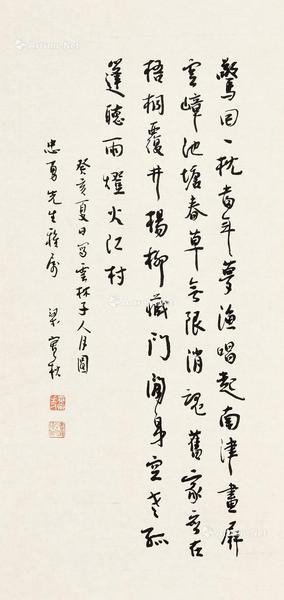 驚回一枕當年夢漁唱起南津畫屏
雲嶂池塘春草無限消魂舊家應在
梧桐覆井楊柳藏門閒身空老孤
篷聽雨燈火江村
癸亥夏日寫雲林子人月圓
忠勇先生雅屬 梁實秋